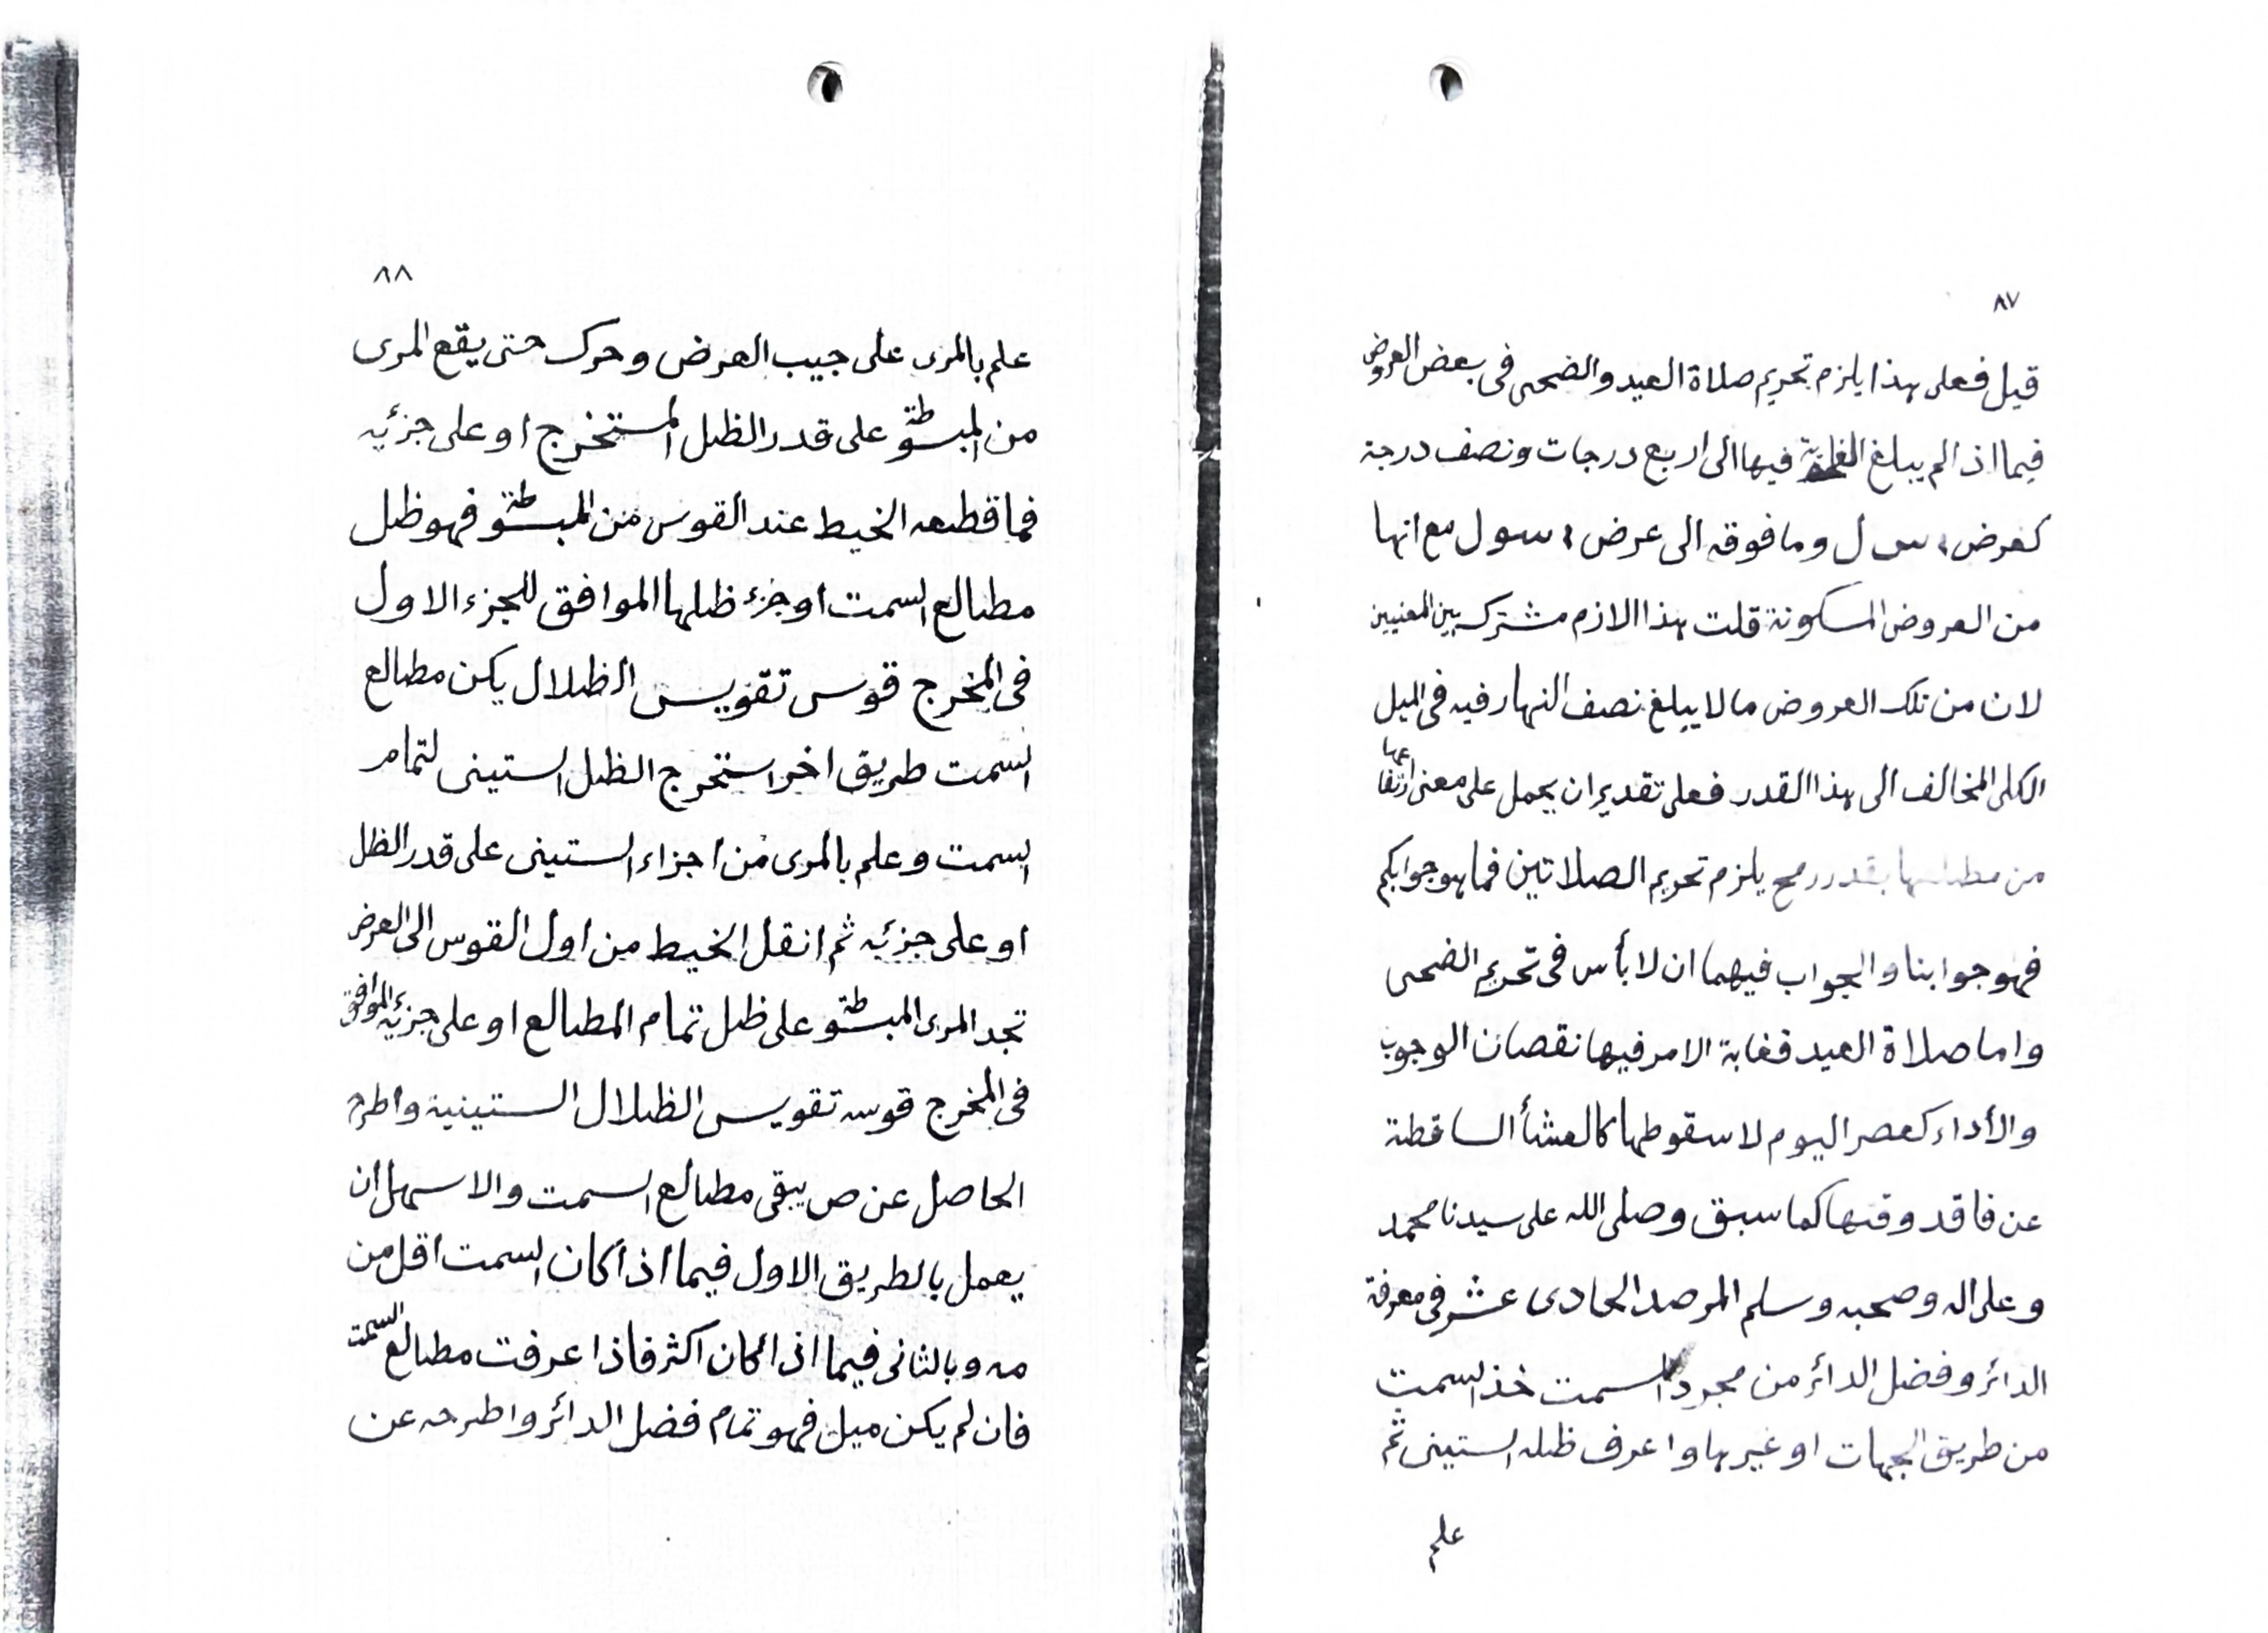 ٨٧
قيل فعلى هذا يلزم تحريم صلاة العيد والضحى فى بعض العروض
فيما اذا لم يبلغ الغاية فيها الى اربع درجات ونصف درجة
كعرض سول وما فوقه الى عرض سول مع انها
من العروض المسكونة قلت هذا الازم مشترك بين المعنيين
لان من تلك العروض ما لا يبلغ نصف النهار فيه فى الميل
الكلى المخالف الى هذا القدر فعلى تقدير ان يحمل على معنى ارتفاعها
من مطلعها بقدر رمح يلزم تحريم الصلاتين فما هو جوابكم
فهو جوابنا والجواب فيهما ان لا بأس فى تحريم الضحى
واما صلاة العيد فغاية الامر فيها نقصان الوجوب
والأداء كعصر اليوم لا سقوطها كالعشأ الساقطة
عن فاقد وقتها كما سبق وصلى الله على سيدنا محمد
وعلى اله وصحبه وسلم المرصد الحادى عشر فى معرفة
الدائر وفضل الدائر من مجرد السمت خذ السمت
من طريق الجهات او غيرها واعرف ظله الستينى ثم
علم
٨٨
علم بالمرى على جيب العرض وحرك حتى يقع المرى
من المبسوطة على قدر الظل المستخرج او على جزئه
فما قطعه الخيط عند القوس من المبسوطة فهو ظل
مطالع السمت او جزء ظلها الموافق للجزء الاول
فى المخرج قوس تقويس الظلال يكن مطالع
السمت طريق اخر استخرج الظل الستينى لتمام
السمت وعلم بالمرى من اجزاء الستينى على قدر الظل
او على جزئه ثم انقل الخيط من اول القوس الى العرض
تجد المرى المبسوطة على ظل تمام المطالع او على جزئه الموافق
فى المخرج قوسه تقويس الظلال الستينية واطرح
الحاصل عن ص يبقى مطالع السمت والاسهل ان
يعمل بالطريق الاول فيما اذا كان السمت اقل من
مه وبالثانى فيما اذا كان اكثر فاذا عرفت مطالع السمت
فان لم يكن ميل فهو تمام فضل الدائر واطرحه عن